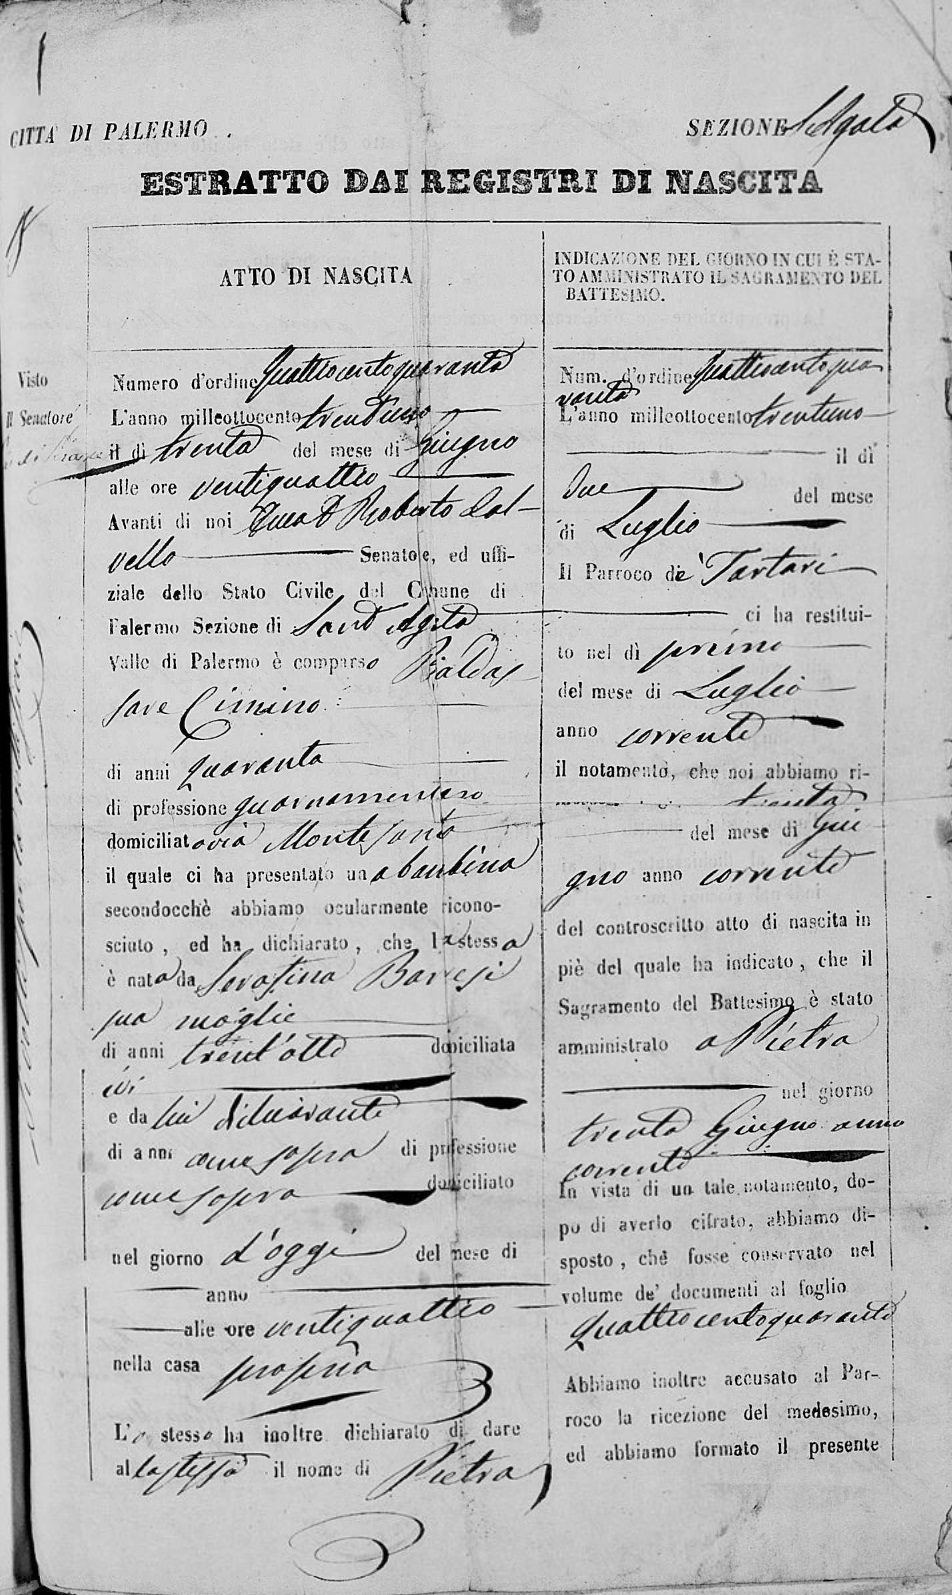 CITTÀ DI PALERMO.
SEZIONE S. Agata
ESTRATTO DAI REGISTRI DI NASCITA
ATTO DI NASCITA
Numero d'ordine Quattrocentoquaranta
L'anno milleottocento trentuno
il dì trenta del mese di Giugno
alle ore ventiquattro
Avanti di noi Duca D. Roberto Cal-
vello Senatore, ed uffi-
ziale dello Stato Civile del Comune di
Palermo Sezione di Sant'Agata
Valle di Palermo è comparso Baldas
sare Cimino
di anni quaranta
di professione
domiciliato via Monte Santo
il quale ci ha presentato una bambina
secondocchè abbiamo ocularmente ricono-
sciuto, ed ha dichiarato, che la stessa
è nata da Serafina Barresi
sua moglie
di anni trent'otto domiciliata
ivi
e da lui dichiarante
di anni come sopra di professione
come sopra domiciliato
nel giorno d'oggi del mese di
anno
alle ore ventiquattro
nella casa propria
Lo stesso ha inoltre dichiarato di dare
alla stessa il nome di Pietra
INDICAZIONE DEL GIORNO IN CUI È STA-
TO AMMINISTRATO IL SAGRAMENTO DEL
BATTESIMO.
Num. d'ordine Quattrocentoqua
ranta
L'anno milleottocento trentuno
il dì
due del mese
di Luglio
Il Parroco de' Tartari
ci ha restitui-
to nel dì primo
del mese di Luglio
anno corrente
il notamento, che noi abbiamo ri-
trenta
del mese di Giu
gno anno corrente
del controscritto atto di nascita in
piè del quale ha indicato, che il
Sagramento del Battesimo è stato
amministrato a Pietra
nel giorno
trenta Giugno anno
corrente
In vista di un tale notamento, do-
po di averlo cifrato, abbiamo di-
sposto, che fosse conservato nel
volume de' documenti al foglio
Quattrocentoquaranta
Abbiamo inoltre accusato al Par-
roco la ricezione del medesimo,
ed abbiamo formato il presente
Visto
Il Senatore